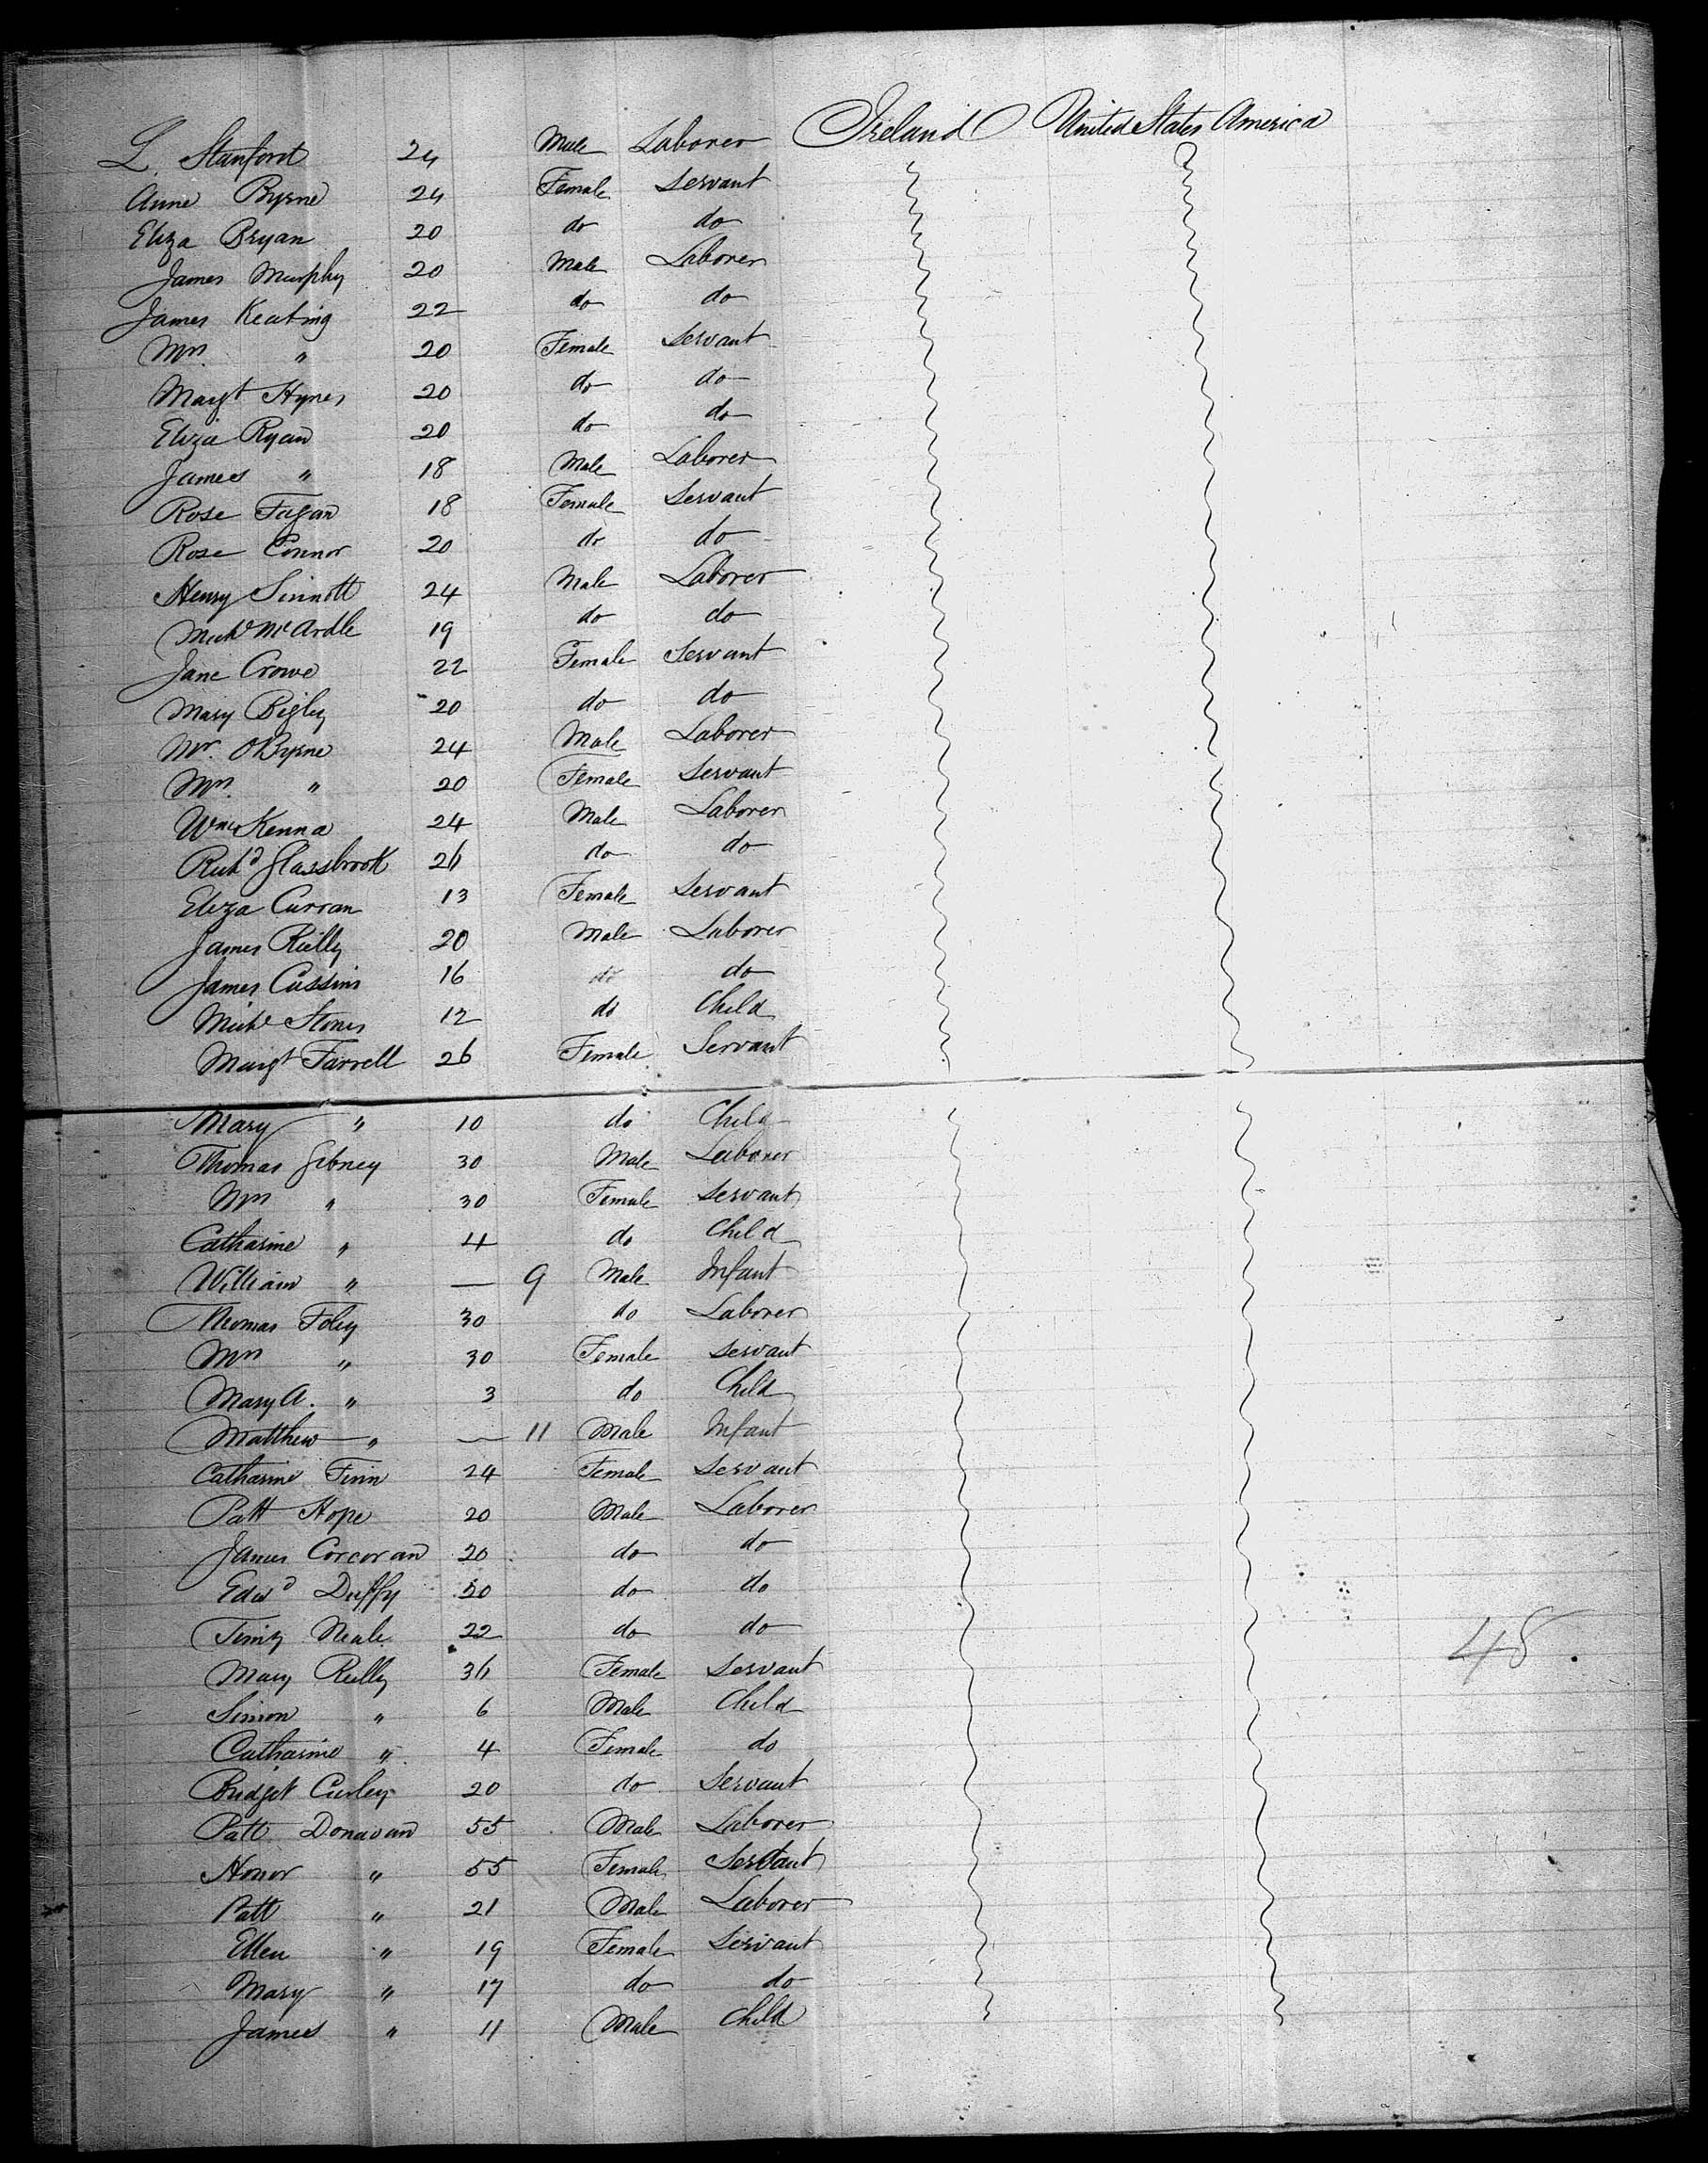 L. Stanford 24 Male Laborer Ireland United States America
Anne Byrne 24 Female Servant
Eliza Bryan 20 do do
James Murphy 20 Male Laborer
James Keating 22 do do
Mrs " 20 Female Servant
Margt Hynes 20 do do
Eliza Ryan 20 do do
James " 18 Male Laborer
Rose Fagan 18 Female Servant
Rose Connor 20 do do
Henry Sinnott 24 Male Laborer
Michl McArdle 19 do do
Jane Crowe 22 Female Servant
Mary Bigley 20 do do
Mr. OByrne 24 Male Laborer
Mrs. " 20 Female Servant
Wm Kenna 24 Male Laborer
Richd Glassbrook 26 do do
Eliza Curran 13 Female Servant
James Rielly 20 Male Laborer
James Cussins 16 do do
Michl Stones 12 do Child
Margt Farrell 26 Female Servant
Mary " 10 do Child
Thomas Gibney 30 Male Laborer
Mrs " 30 Female Servant
Catharine " 4 do Child
William " — 9 Male Infant
Thomas Foley 30 do Laborer
Mrs " 30 Female Servant
Mary A. " 3 do Child
Matthew " — 11 Male Infant
Catharine Finn 24 Female Servant
Patt Hope 20 Male Laborer
James Corcoran 20 do do
Edwd Duffy 50 do do
Timy Neale 22 do do
Mary Reilly 36 Female Servant
48
Simon " 6 Male Child
Catharine " 4 Female do
Bridget Curley 20 do Servant
Patt Donavan 55 Male Laborer
Honor " 55 Female Servant
Patt " 21 Male Laborer
Ellen " 19 Female Servant
Mary " 17 do do
James " 11 Male Child